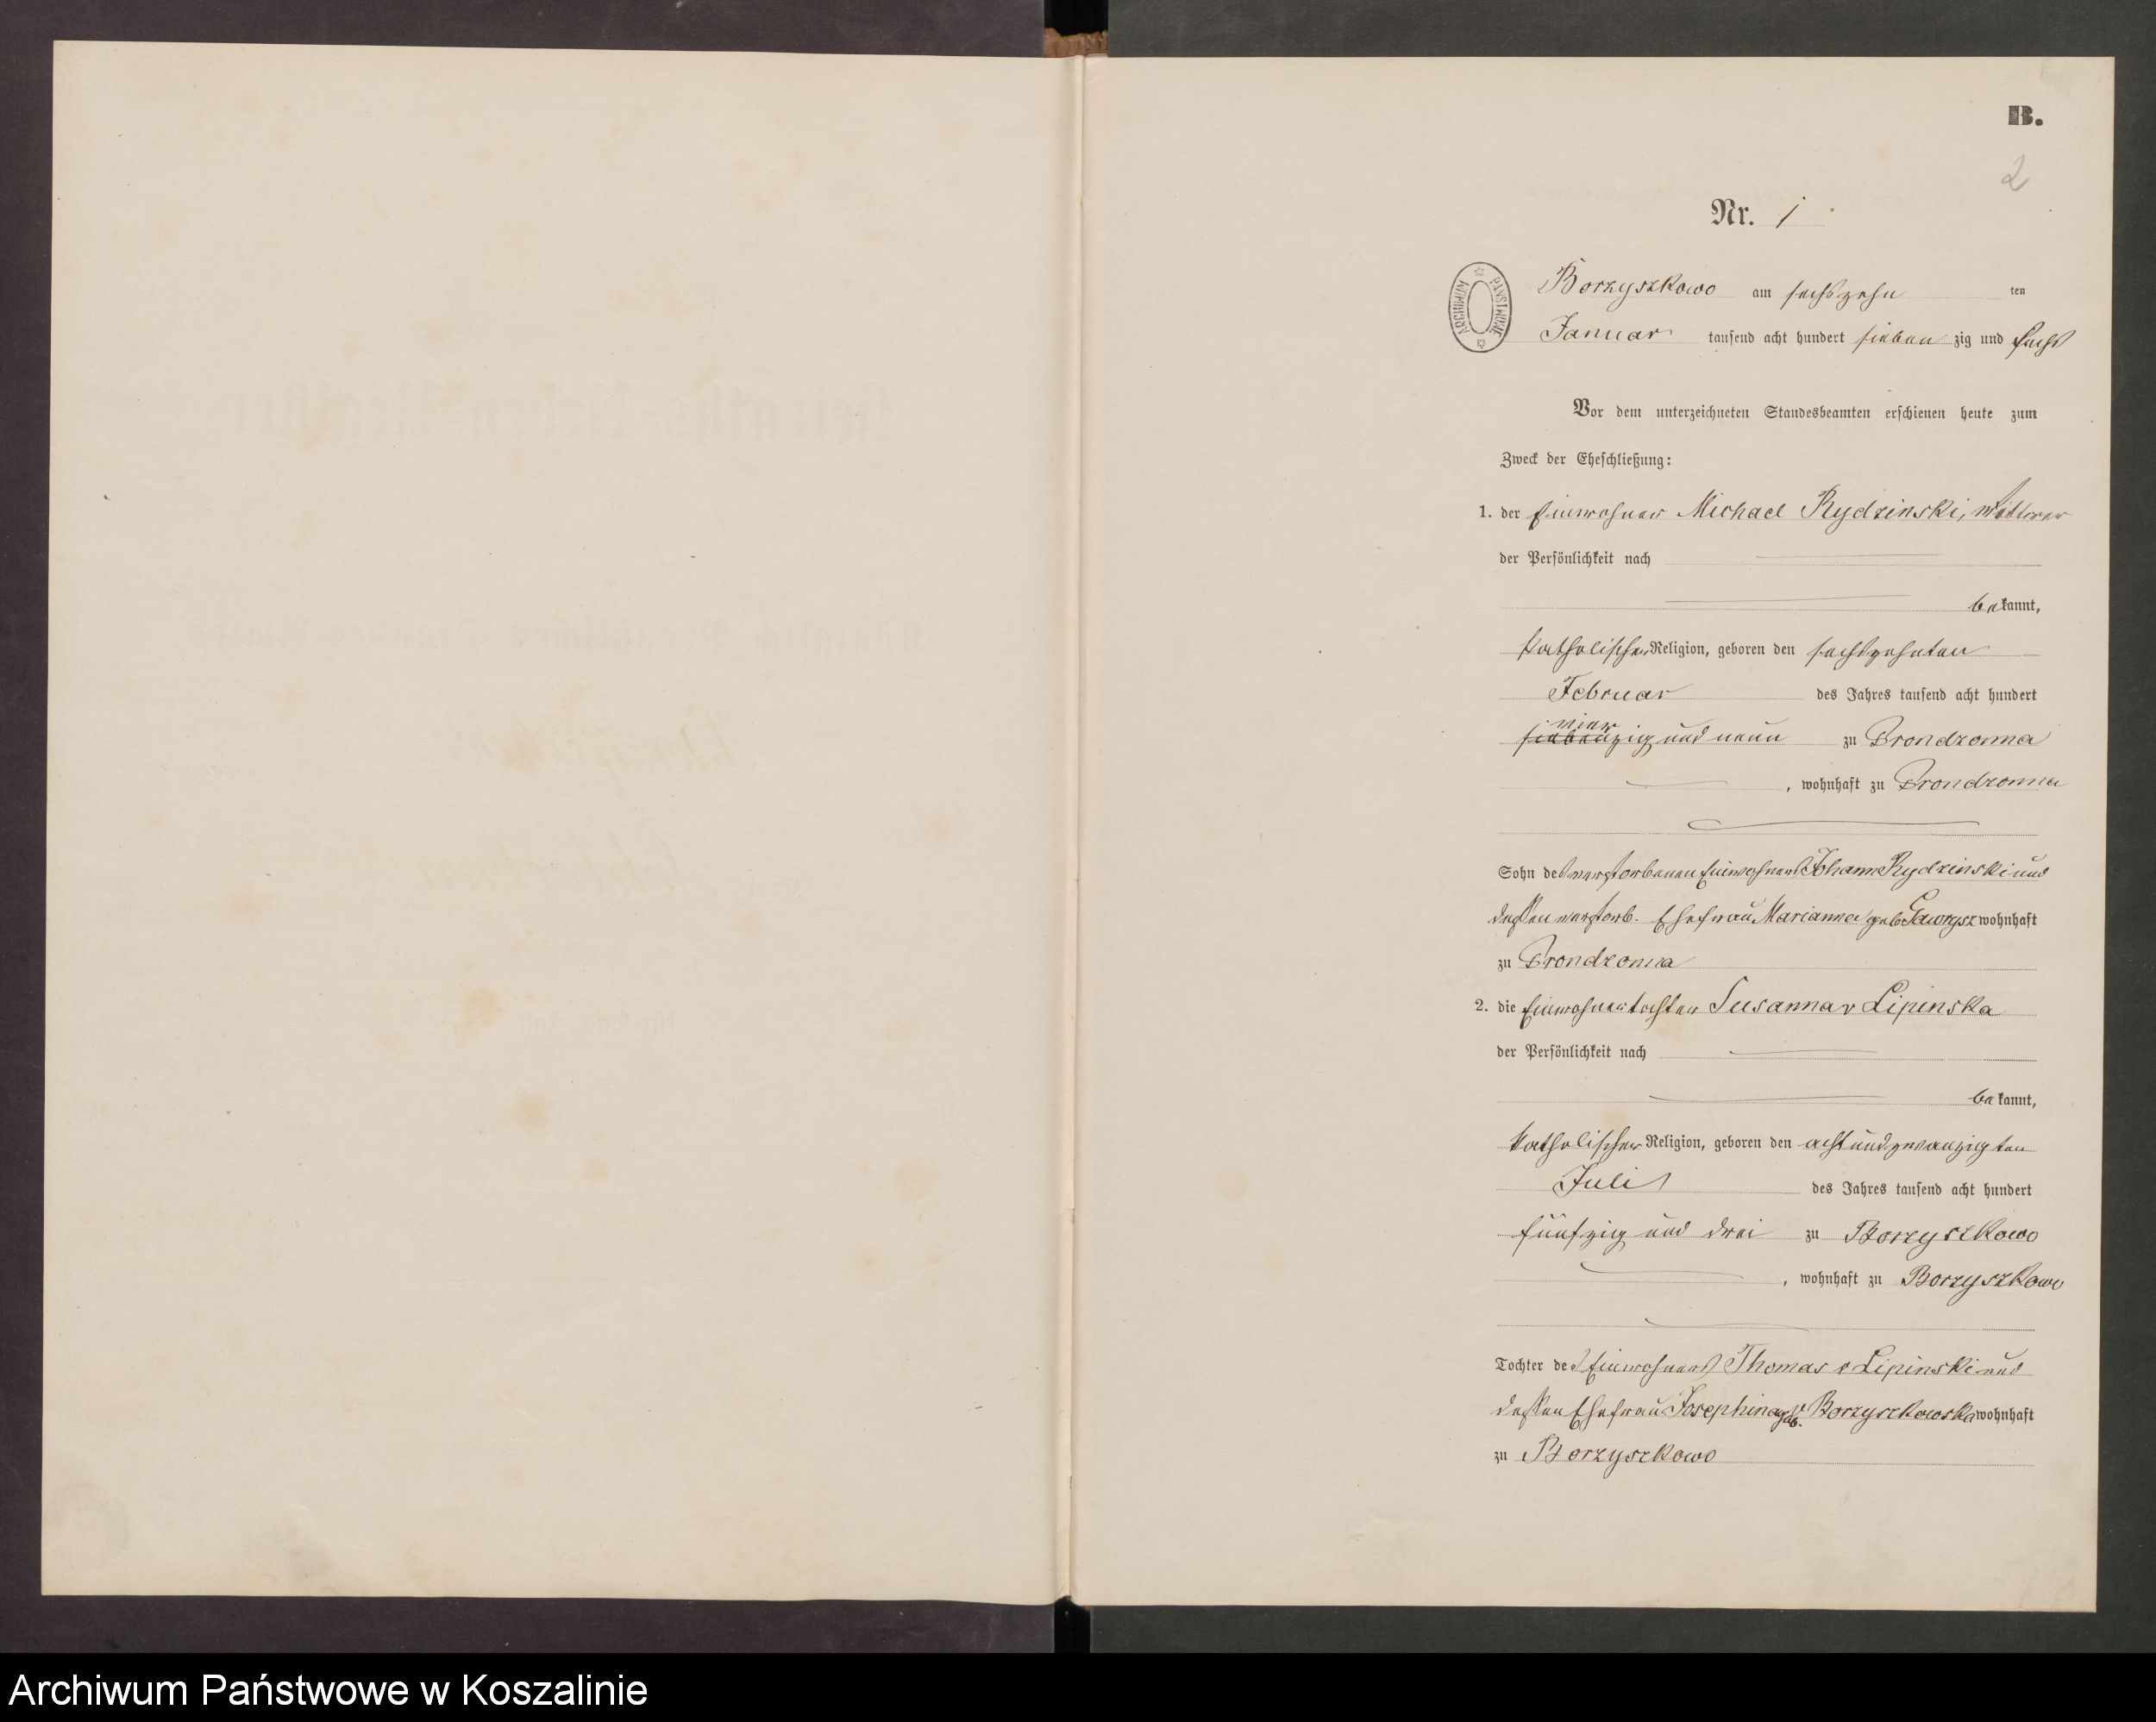 B.
2
Nr. 1
ARCHIWUM PAŃSTWOWE
Borzyszkowo am sechszehn ten
Januar tausend acht hundert sieben zig und sechs
Vor dem unterzeichneten Standesbeamten erschienen heute zum
Zweck der Eheschließung:
1. der Einwohner Michael Rydzinski, Wittwer
der Persönlichkeit nach
bekannt,
katholischer Religion, geboren den sechszehnten
Februar des Jahres tausend acht hundert
vier
siebenzig und neun zu Brondzonna
, wohnhaft zu Brondzonna
Sohn des verstorbenen Einwohners Johann Rydzinski und
dessen verstorb. Ehefrau Marianna geb. Gawrysz wohnhaft
zu Brondzonna
2. die Einwohnertochter Susanna v Lipinska
der Persönlichkeit nach
bekannt,
katholischer Religion, geboren den achtundzwanzigten
Juli des Jahres tausend acht hundert
fünfzig und drei zu Borzyszkowo
, wohnhaft zu Borzyszkowo
Tochter des Einwohners Thomas v Lipinski und
dessen Ehefrau Josephina geb. v Borzyszkowska wohnhaft
zu Borzyszkowo
Archiwum Państwowe w Koszalinie